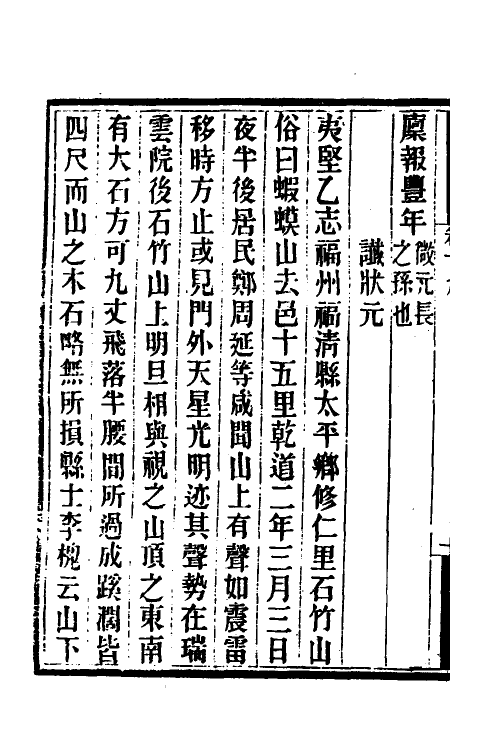 廪報豐年徵元長之孫也
讖狀元
夷堅乙志福州福清縣太平鄉修仁里石竹山
俗曰蝦蟆山去邑十五里乾道二年三月三日
夜半後居民鄭周延等咸聞山上有聲如震雷
移時方止或見門外天星光明迹其聲勢在瑞
雲院後石竹山上明旦相與視之山頂之東南
有大石方可九丈飛落半腰間所過成蹊濶皆
四尺而山之木石略無所損縣士李槐云山下